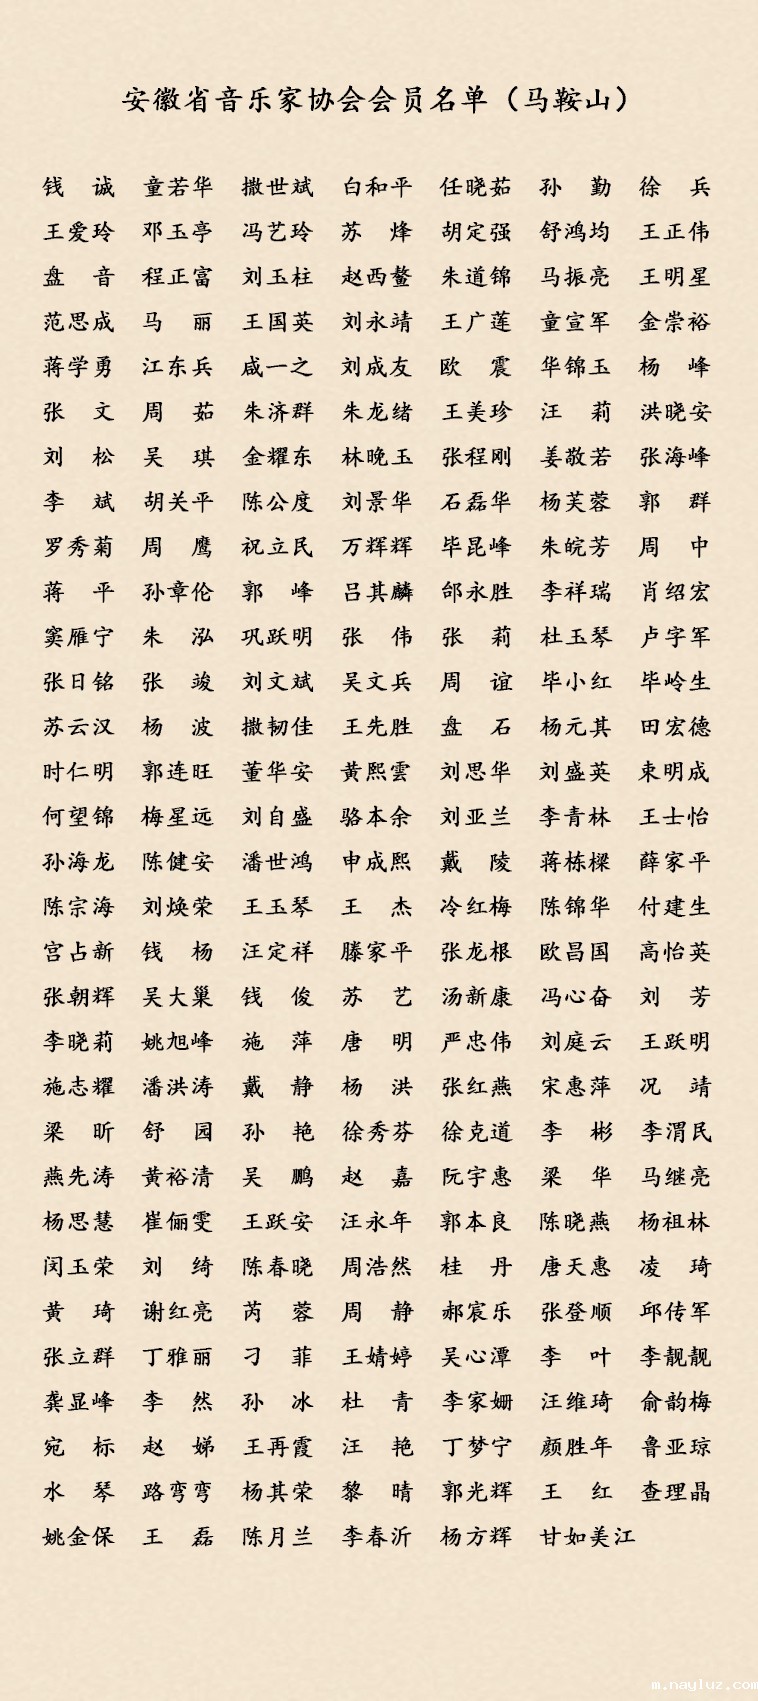 安徽省音乐家协会会员名单（马鞍山）
钱　诚　童若华　撒世斌　白和平　任晓茹　孙　勤　徐　兵
王爱玲　邓玉亭　冯艺玲　苏　烽　胡定强　舒鸿均　王正伟
盘　音　程正富　刘玉柱　赵西鳌　朱道锦　马振亮　王明星
范思成　马　丽　王国英　刘永靖　王广莲　童宣军　金崇裕
蒋学勇　江东兵　戚一之　刘成友　欧　震　华锦玉　杨　峰
张　文　周　茹　朱济群　朱龙绪　王美珍　汪　莉　洪晓安
刘　松　吴　琪　金耀东　林晚玉　张程刚　姜敬若　张海峰
李　斌　胡关平　陈公度　刘景华　石磊华　杨芙蓉　郭　群
罗秀菊　周　鹰　祝立民　万辉辉　毕昆峰　朱皖芳　周　中
蒋　平　孙章伦　郭　峰　吕其麟　邰永胜　李祥瑞　肖绍宏
窦雁宁　朱　泓　巩跃明　张　伟　张　莉　杜玉琴　卢字军
张日铭　张　竣　刘文斌　吴文兵　周　谊　毕小红　毕岭生
苏云汉　杨　波　撒韧佳　王先胜　盘　石　杨元其　田宏德
时仁明　郭连旺　董华安　黄熙雲　刘思华　刘盛英　束明成
何望锦　梅星远　刘自盛　骆本余　刘亚兰　李青林　王士怡
孙海龙　陈健安　潘世鸿　申成熙　戴　陵　蒋栋樑　薛家平
陈宗海　刘焕荣　王玉琴　王　杰　冷红梅　陈锦华　付建生
宫占新　钱　杨　汪定祥　滕家平　张龙根　欧昌国　高怡英
张朝辉　吴大巢　钱　俊　苏　艺　汤新康　冯心奋　刘　芳
李晓莉　姚旭峰　施　萍　唐　明　严忠伟　刘庭云　王跃明
施志耀　潘洪涛　戴　静　杨　洪　张红燕　宋惠萍　况　靖
梁　昕　舒　园　孙　艳　徐秀芬　徐克道　李　彬　李渭民
燕先涛　黄裕清　吴　鹏　赵　嘉　阮宇惠　梁　华　马继亮
杨思慧　崔俪雯　王跃安　汪永年　郭本良　陈晓燕　杨祖林
闵玉荣　刘　绮　陈春晓　周浩然　桂　丹　唐天惠　凌　琦
黄　琦　谢红亮　芮　蓉　周　静　郝宸乐　张登顺　邱传军
张立群　丁雅丽　刁　菲　王婧婷　吴心潭　李　叶　李靓靓
龚显峰　李　然　孙　冰　杜　青　李家姗　汪维琦　俞韵梅
宛　标　赵　娣　王再霞　汪　艳　丁梦宁　颜胜年　鲁亚琼
水　琴　路弯弯　杨其荣　黎　晴　郭光辉　王　红　查理晶
姚金保　王　磊　陈月兰　李春沂　杨方辉　甘如美江
m.nayluz.com